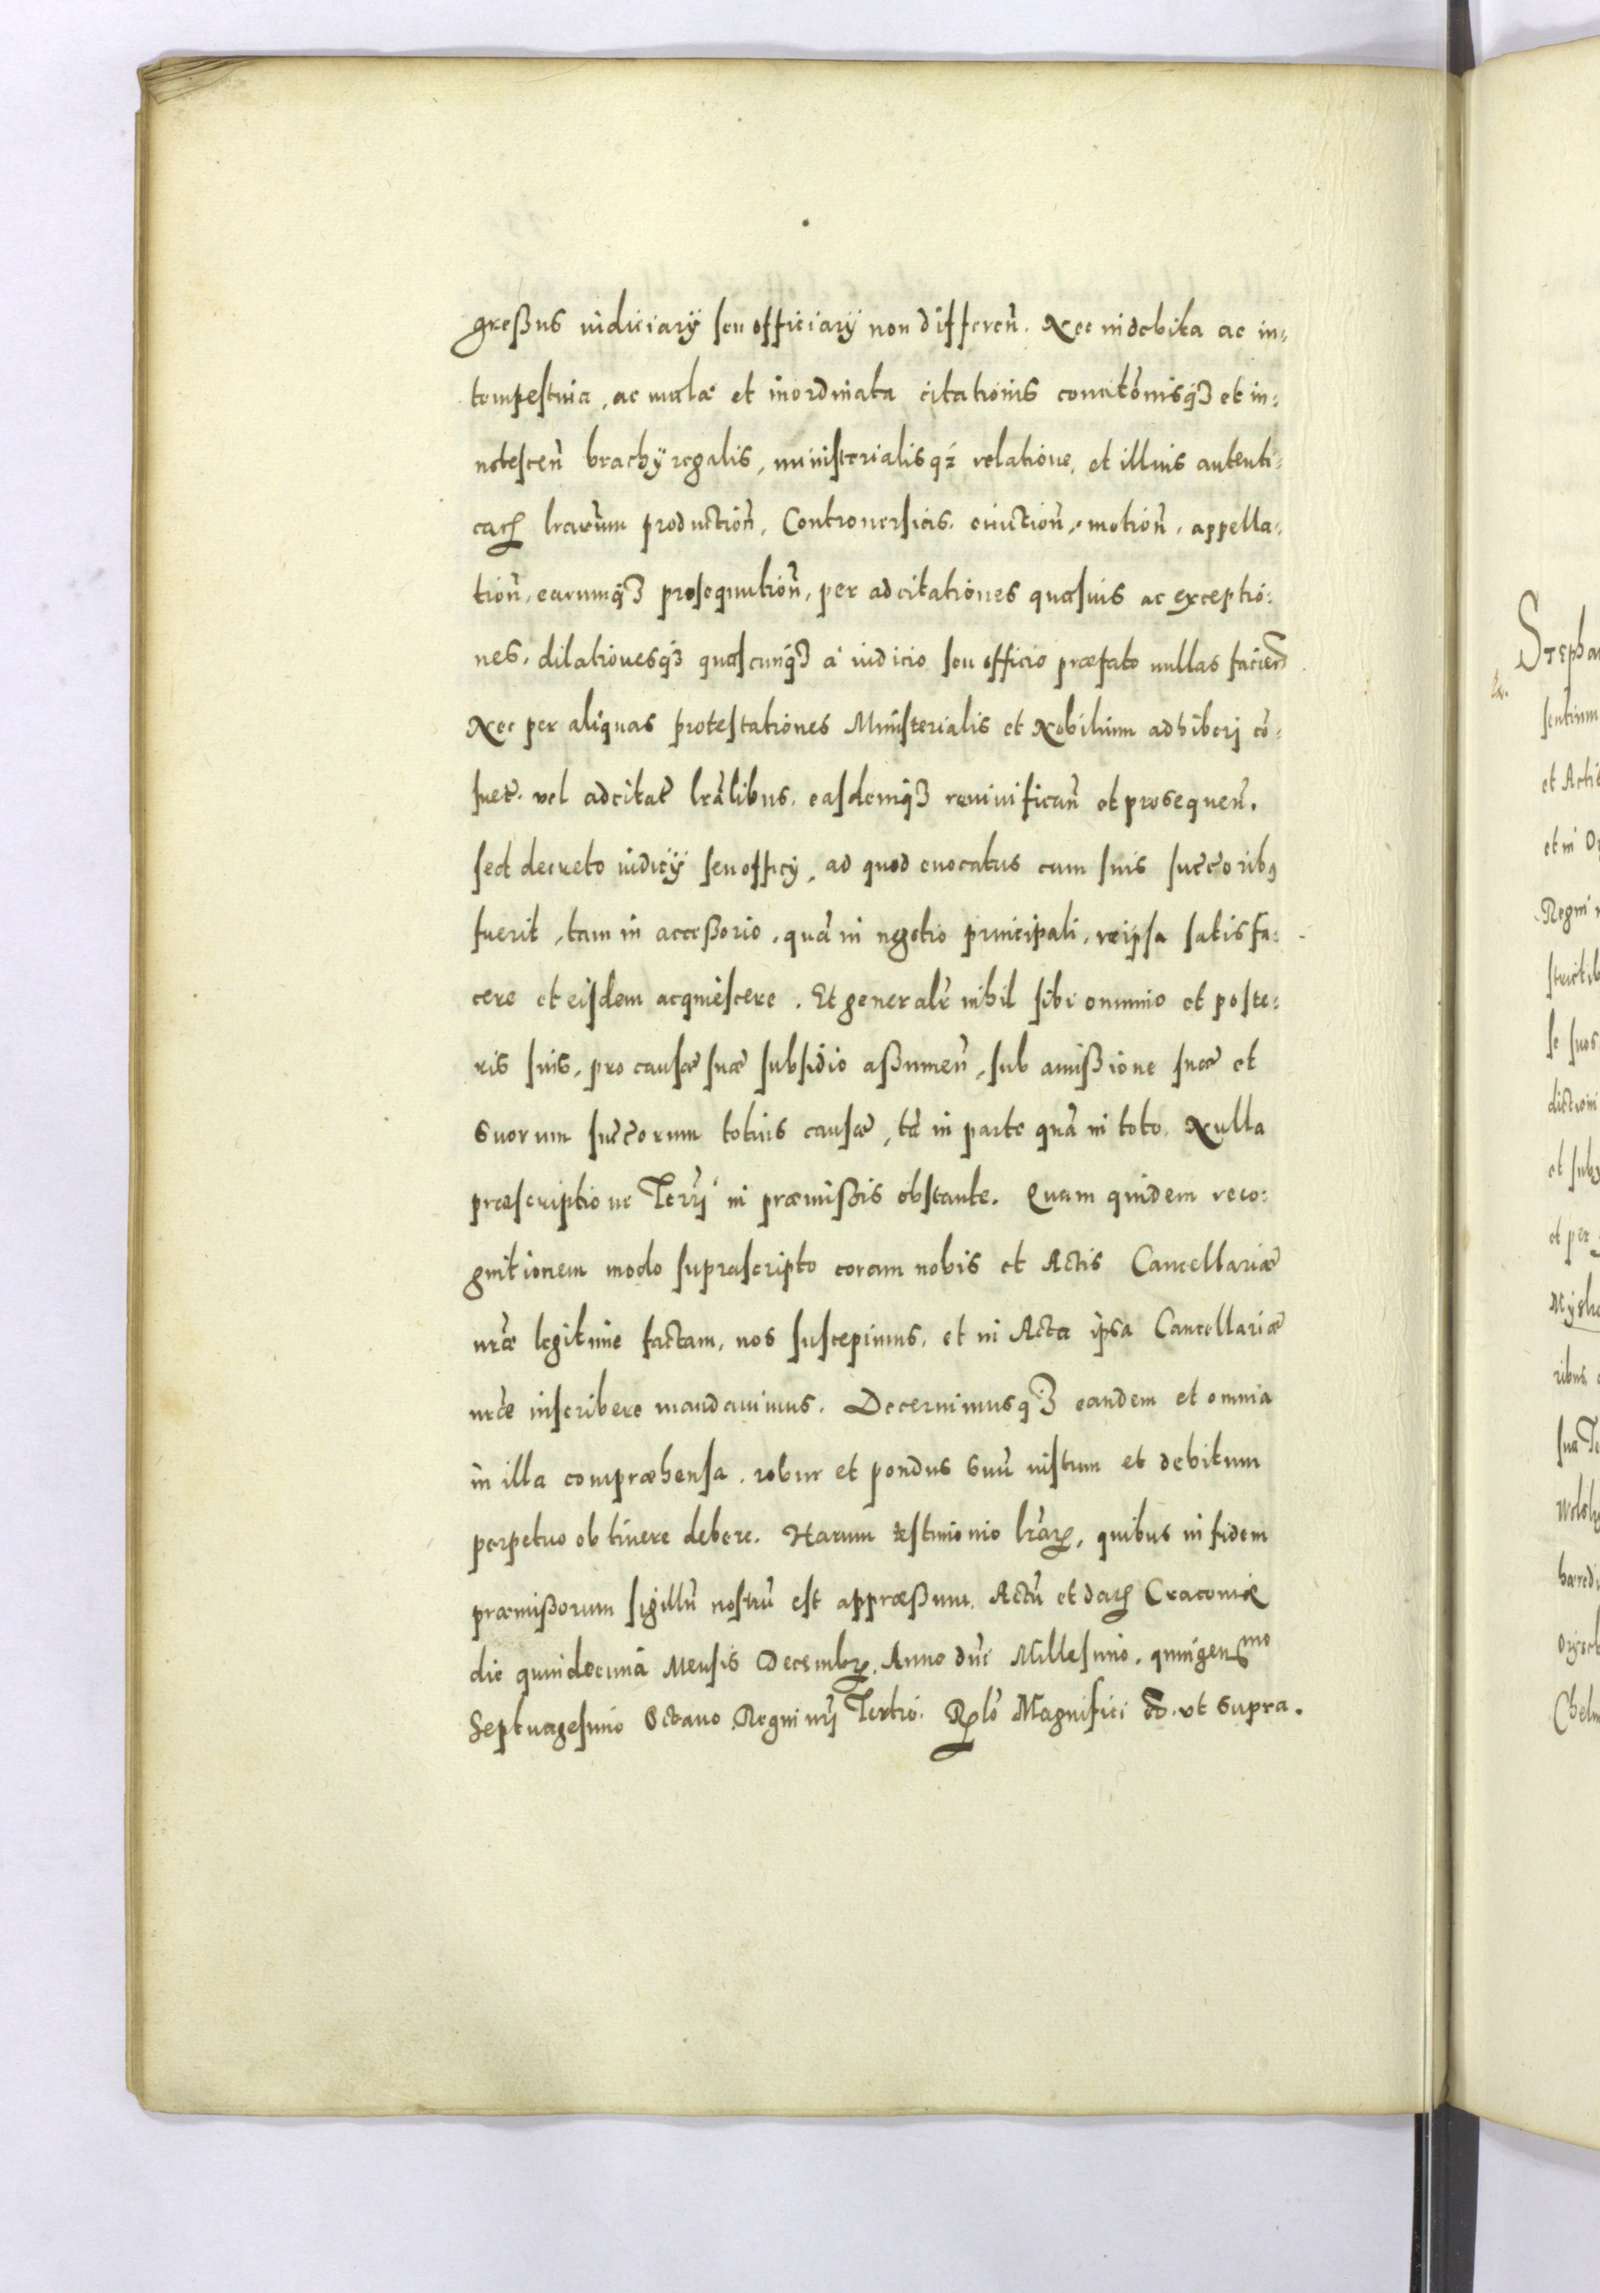 greßus iudiciarÿ seu officiarÿ non differeñ. Nec indebita ac in-
tempestiua, ac malæ et inordinata citationis conuitõnisq3 et in-
notesceñ brachÿ regalis, ministerialisq3 relatione, et illius autenti-
caȝ lrarũm productioñ, Controuersieis, euictioñ, motioñ, appella-
tioñ, earumq3 prosequutioñ, per adcitationes quasuis ac exceptio:
nes, dilationesq3 quascunq3 a iudicio seu officio præfato nullas facieñ
Nec per aliquas protestationes Ministerialis et Nobilium adhiberj cõ-
suet̃. vel adcitat̃ lrãlibus, easdemq3 reuiuificañ et prosequeñ.
sed decreto iudicÿ seu officÿ, ad quod euocatus cum suis succ̃oribꝰ
fuerit, tam in acceßorio, quã in negotio principali, reipsa satisfa:
cere et eisdem acquiescere. Et generalr̃ nihil sibi omnino et poste:
ris suis, pro causæ suæ subsidio aßumeñ, sub amißione suæ et
suorum succ̃orum totius causæ, tã in parte quã in toto. Nulla
præscriptione Terrj in præmißis obstante. Quam quidem reco:
gnitionem modo suprascripto coram nobis et Actis Cancellariæ
nrãe legitime factam, nos suscepimus, et in Acta ipsa Cancellariæ
nrãe inscribere mandauimus. Decernimusq3 eandem et omnia
in illa compræhensa, robur et pondus suũ iustum et debitum
perpetuo obtinere debere. Harum testimonio lrãrꝝ, quibus in fidem
præmißorum sigillũ nostrũ est appræßum. Actũ et daȝ Cracouiæ
die quindecima Mensis Decembrꝭ. Anno dñi Millesimo, quingenᵐᵒ
Septuagesimo Octauo Regni nrj Tertio. Rꝑlõ Magnifici &c. vt supra.
Stepha
sentium
et Actis
et in O
Regni
se suos
et per
ribus
Chelm